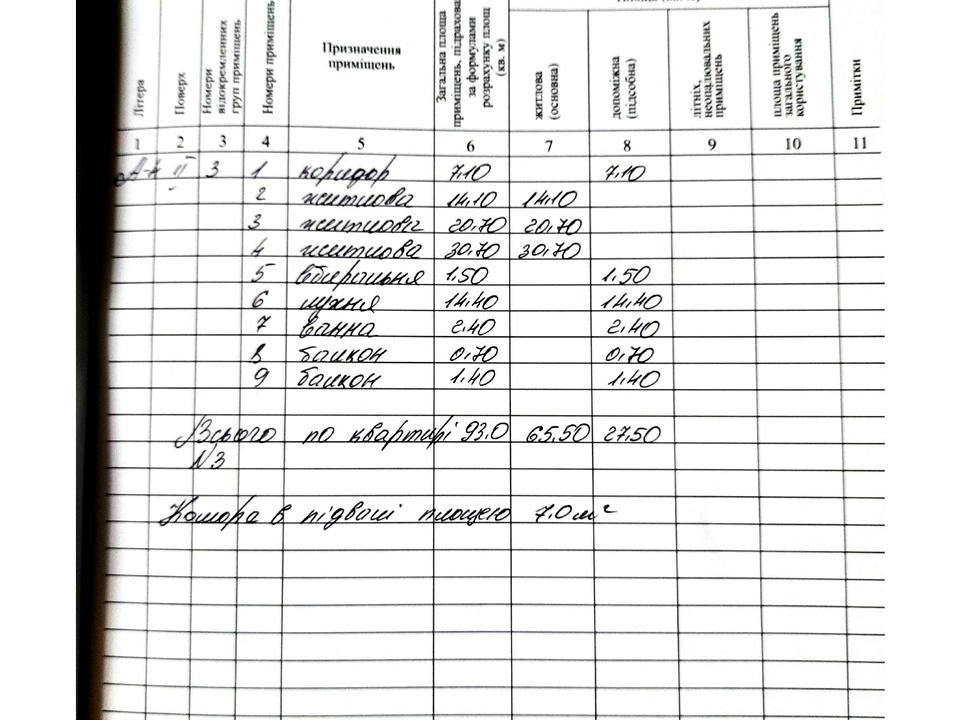 Літера Поверх Номери відокремленних груп приміщень Номери приміщень Призначення приміщень Загальна площа приміщень, підрахована за формулами розрахунку площ (кв. м) житлова (основна) допоміжна (підсобна) літніх, неопалювальних приміщень площа приміщень загального користування Примітки
1 2 3 4 5 6 7 8 9 10 11
А-4 II 3 1 коридор 7.10 7.10
2 житлова 14.10 14.10
3 житлова 20.70 20.70
4 житлова 30.70 30.70
5 вбиральня 1.50 1.50
6 кухня 14.40 14.40
7 ванна 2.40 2.40
8 балкон 0.70 0.70
9 балкон 1.40 1.40
Всього по квартирі 93.0 65.50 27.50
N3
Комора в підвалі площею 7.0 м²